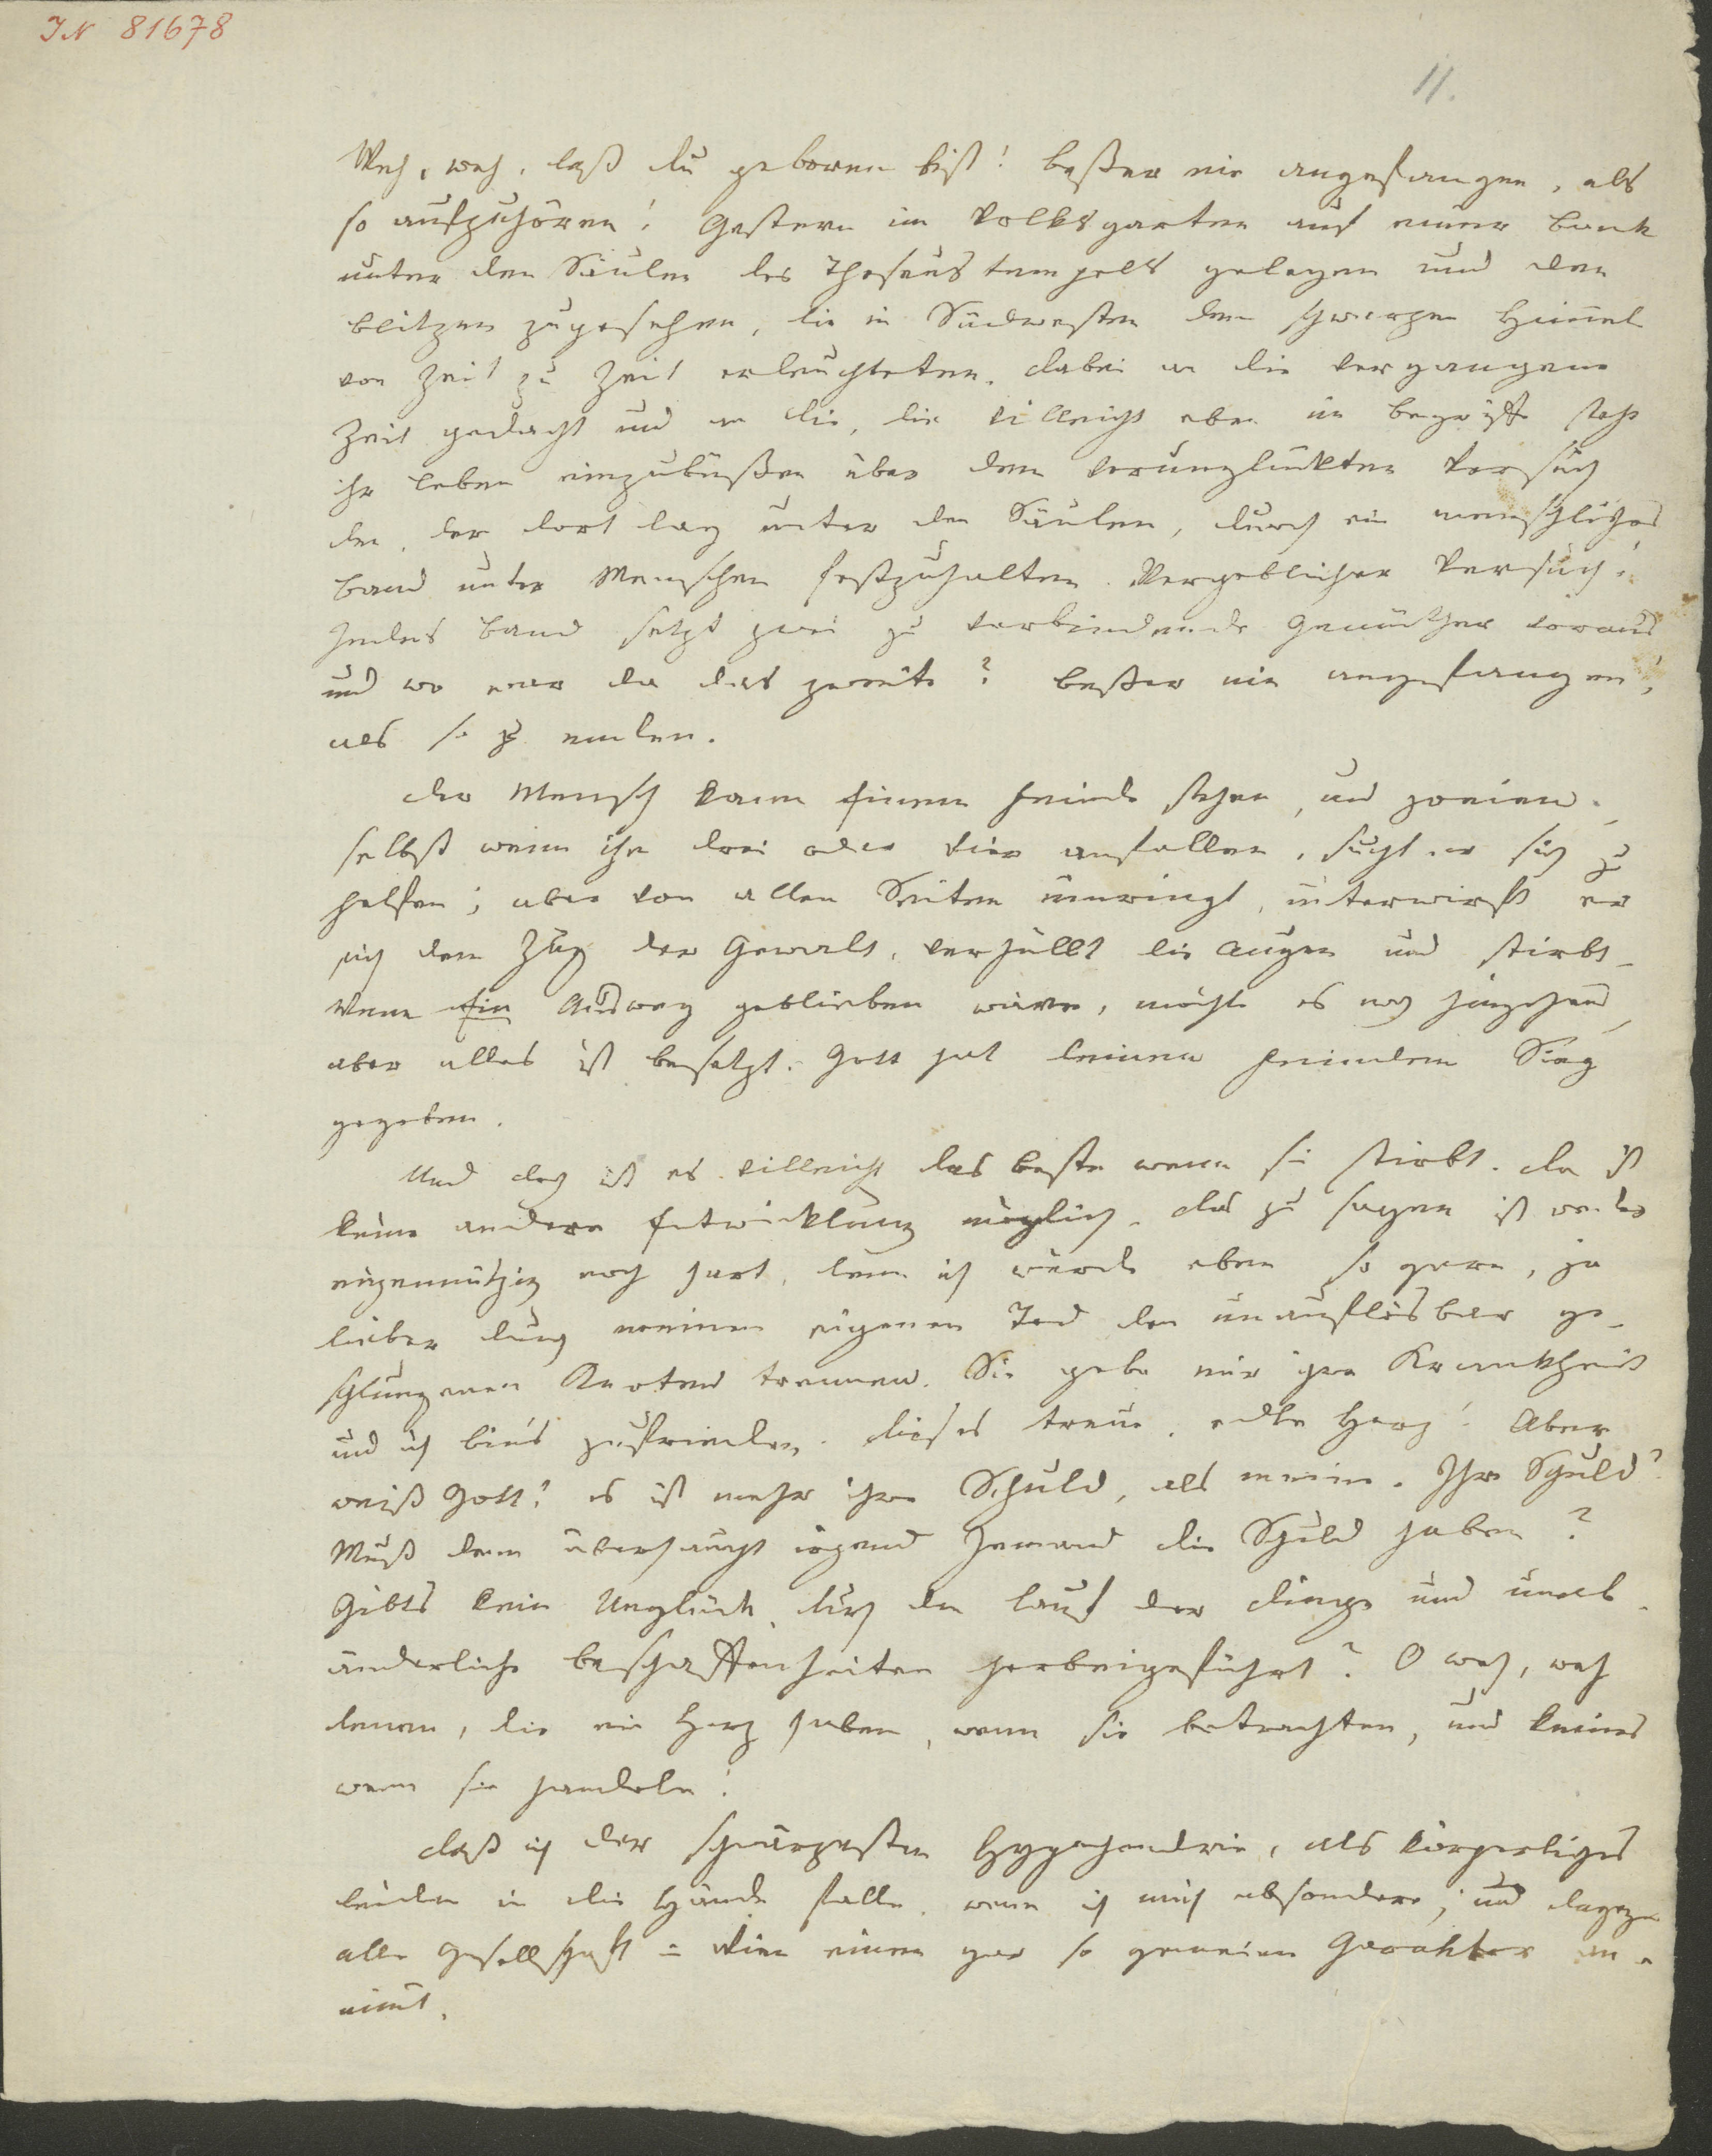 IN 81678
11.
Weh, weh, daß du geboren bist! Beßer nie angefangen, als
so aufzuhören! Gestern im Volksgarten auf einer Bank
unter den Säulen des Theseustempels gelegen und den
Blitzen zugesehen, die in Südwesten den schwarzen Himel
von Zeit zu Zeit erleuchteten. Dabei an die vergangene
Zeit gedacht und an die, die villeicht eben im Begriffe steht
ihr Leben einzubüßen über dem verunglückten Versuch
den, der dort lag unter den Säulen, durch ein menschliches
Band unter Menschen festzuhalten. Vergeblicher Versuch!
Jedes Band setzt zwei zu verbindende Gemüther voraus
und wo war da das zweite? Beßer nie angefangen,
als so zu enden.
Der Mensch kann Einem Feinde stehen, und zweien.
selbst wenn ihn drei oder vier anfallen, sucht er sich zu
helfen; aber von allen Seiten umringt, unterwirft er
sich dem Zug der Gewalt, verhüllt die Augen und stirbt.
Wenn Ein Ausweg geblieben wäre, möchte es noch hingehen,
aber alles ist besetzt. Gott hat seinen Feinden Sieg
gegeben.
Und doch ist es villeicht das beste wenn sie stirbt. Da ist
keine andere Entwicklung möglich. Das zu sagen ist weder
eigennützig noch hart, denn ich würde eben so gern, ja
lieber durch meinen eigenen Tod den unauflösbar ge-
schlungenen Knoten trennen. Sie gebe mir ihre Krankheit
und ich bin's zufrieden. Dieses treue, edle Herz! Aber
weiß Gott! es ist mehr ihre Schuld, als meine. Ihre Schuld?
Muß denn überhaupt irgend Jemand die Schuld haben?
Gibts kein Unglück, durch den Lauf der Dinge und unab-
änderliche Beschaffenheiten herbeigeführt? O weh, weh
denen, die ein Herz haben, wenn sie betrachten, und keines
wenn sie handeln!
Daß ich der schwärzesten Hypochondrie, als körperliches
Leiden in die Hände falle, wenn ich mich absondere; und dagegen
alle Gesellschaft in Wien einen gar so gemeinen Charakter an-
nimt.